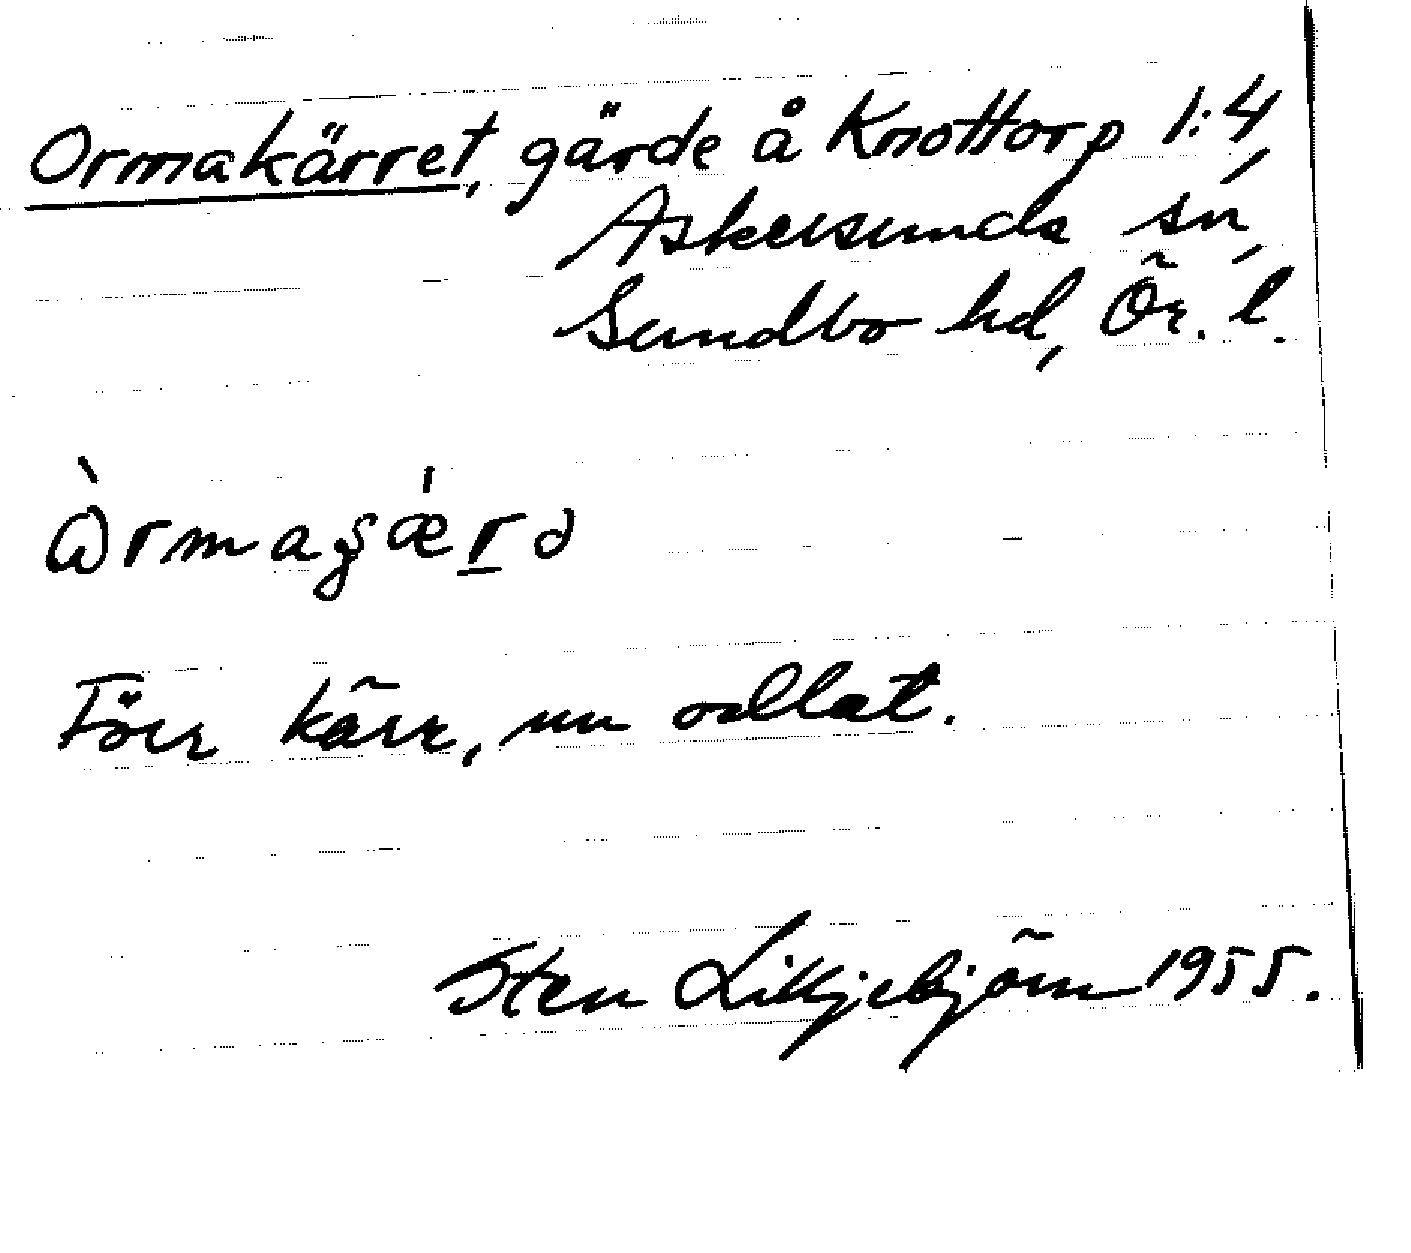 Ormakärret, gärde å Knottorp 1:4,
Askersunds sn,
Sundbo hd, Ör. l.
Förr kärr, nu odlat.
Sten Liljebjörn 1955.